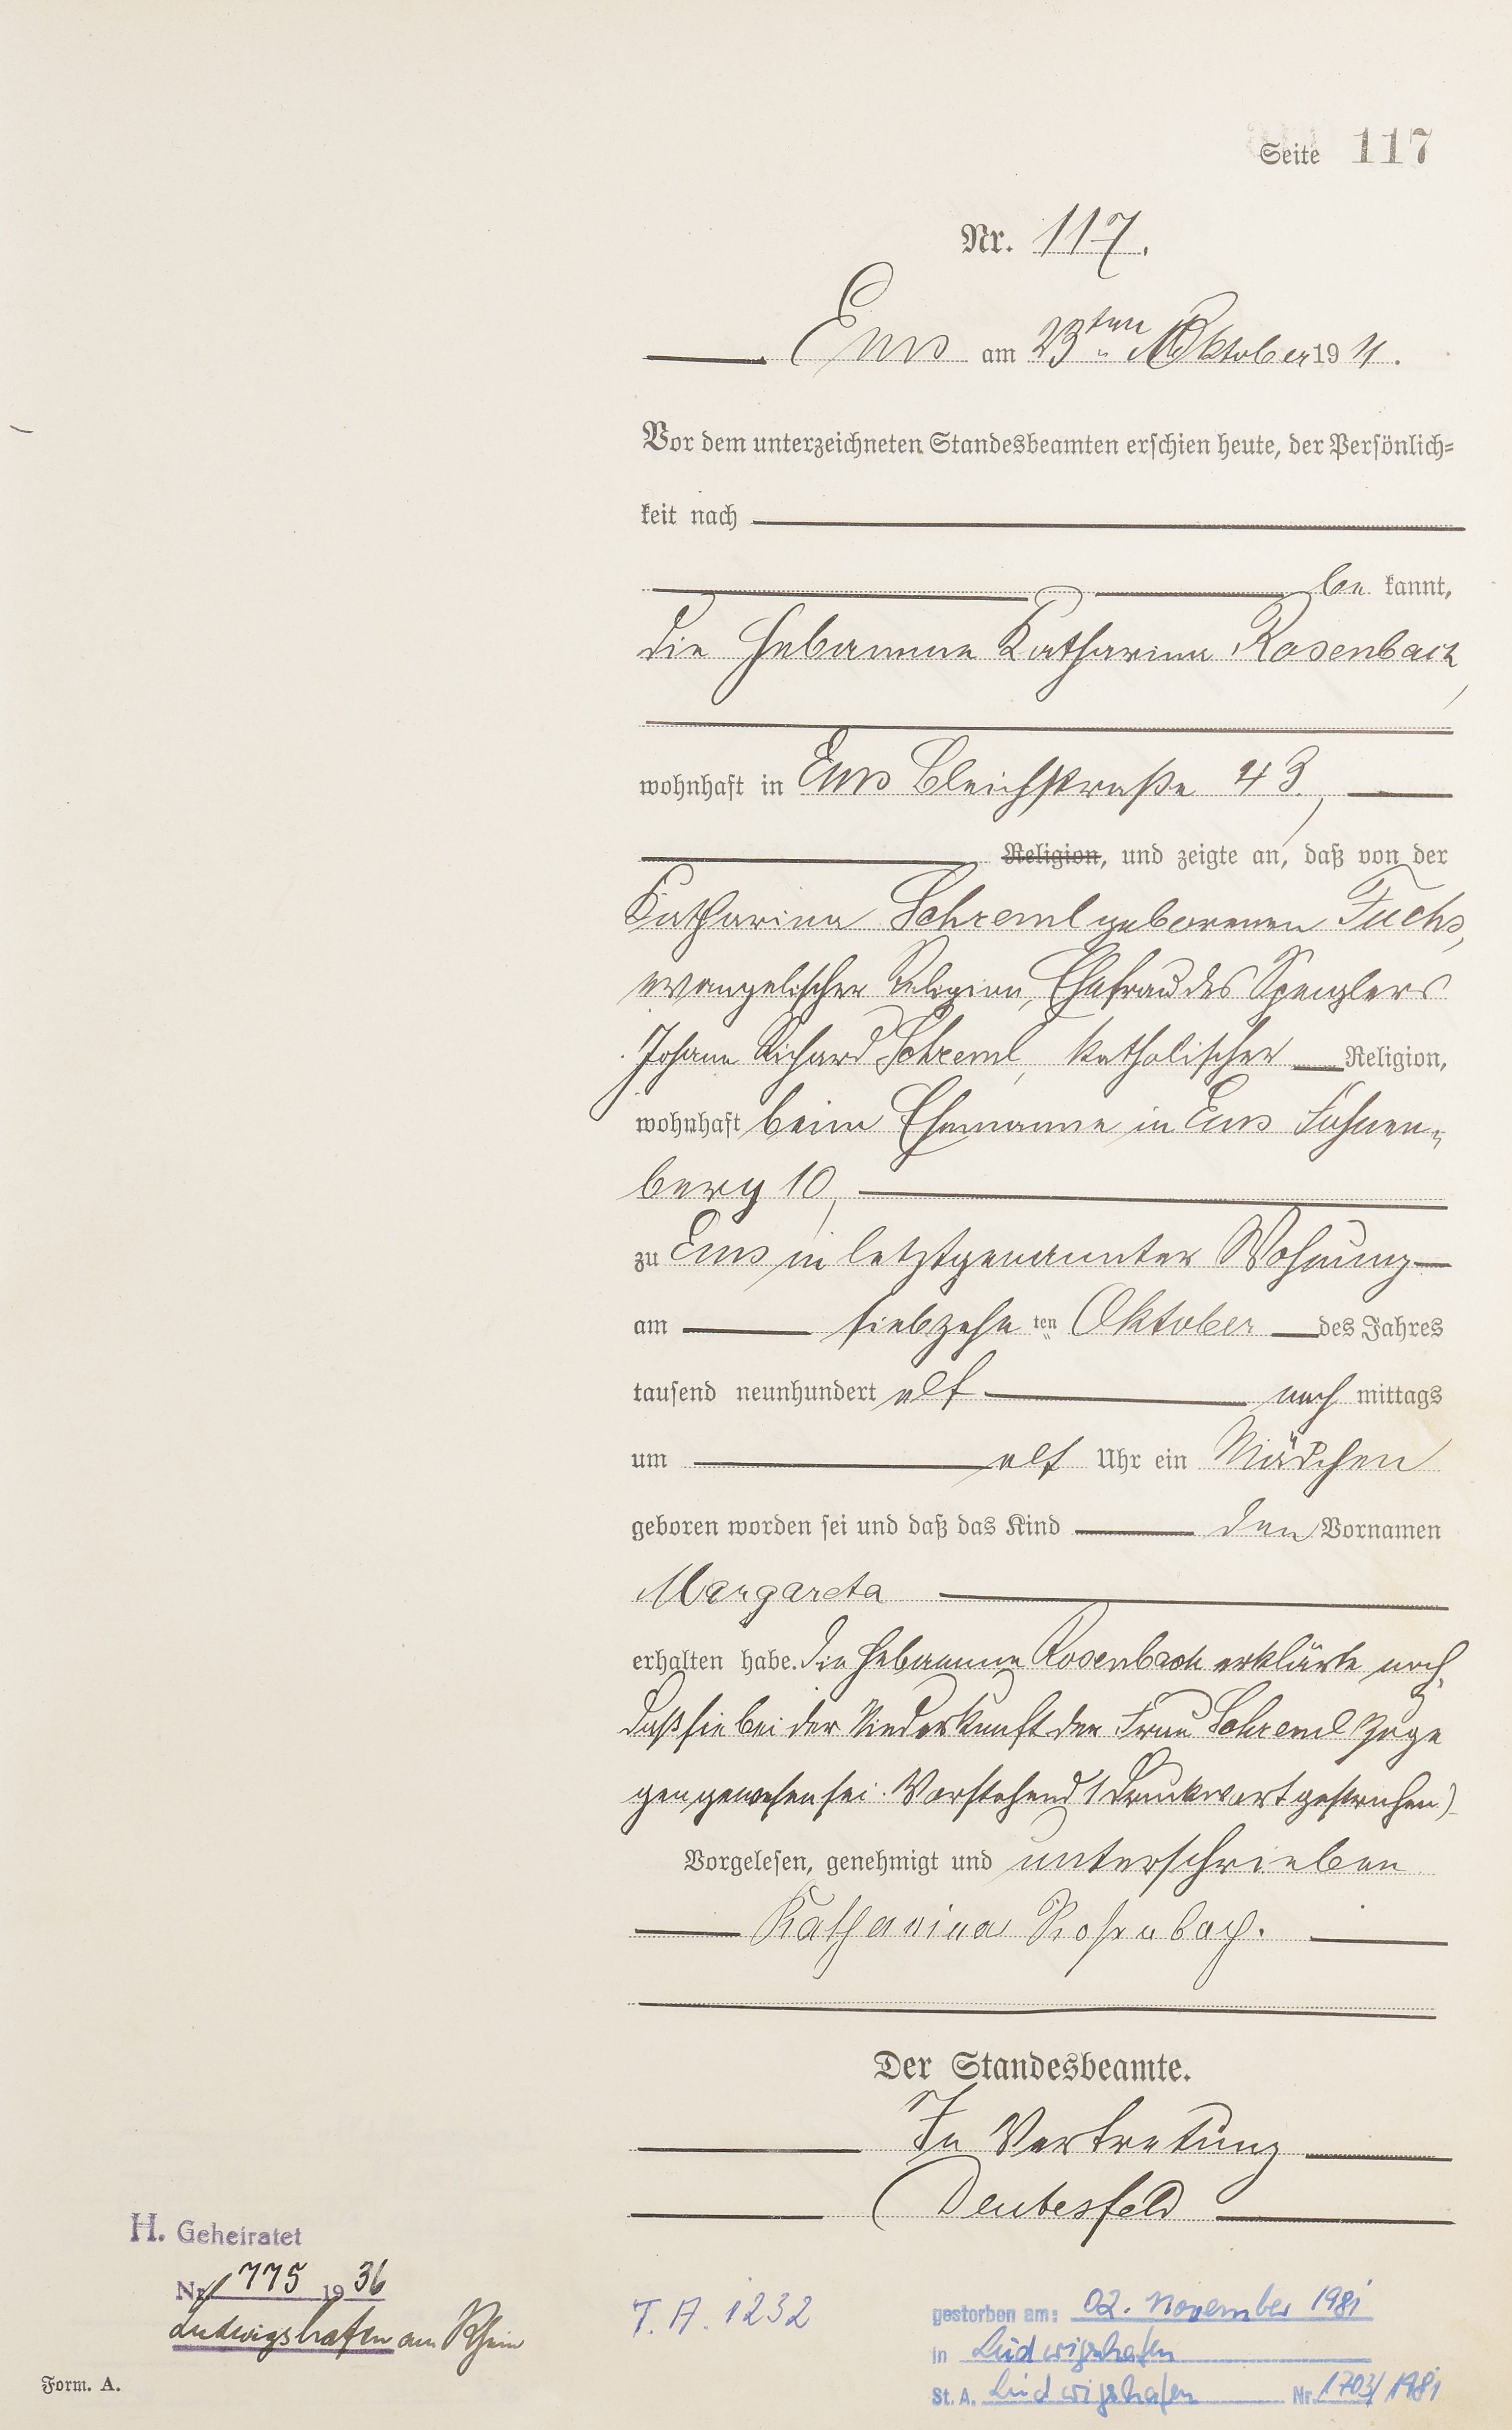 Seite 117
Nr. 117.
Ems am 23ten Oktober 19 11.
Vor dem unterzeichneten Standesbeamten erschien heute, der Persönlich=
keit nach
be kannt,
die Hebamme Katharina Rosenbach,
wohnhaft in Ems Bleichstraße 43,
Religion, und zeigte an, daß von der
Katharina Schreml geborenen Fuchs,
evangelischer Religion, Ehefrau des Spenglers
Johann Richard Schreml, katholischer Religion,
wohnhaft beim Ehemanne in Ems
berg 10,
zu Ems in letztgenannter Wohnung
am siebzehn ten Oktober des Jahres
tausend neunhundert elf nach mittags
um elf Uhr ein Mädchen
geboren worden sei und daß das Kind den Vornamen
Margareta
erhalten habe. Die Hebamme Rosenbach erklärte noch,
daß sie bei der Niederkunft der Frau Schreml zuge
gen gewesen sei. Vorstehend 1 Druckwort gestrichen)
Vorgelesen, genehmigt und unterschrieben
Katharina Rosenbach.
Der Standesbeamte.
In Vertretung
Deutesfeld
H. Geheiratet
Nr. 775 19 36
Ludwigshafen am Rhein
T. A. 1232
gestorben am: 02. November 1981
in Ludwigshafen
St. A. Ludwigshafen Nr. 1703/1981
Form. A.